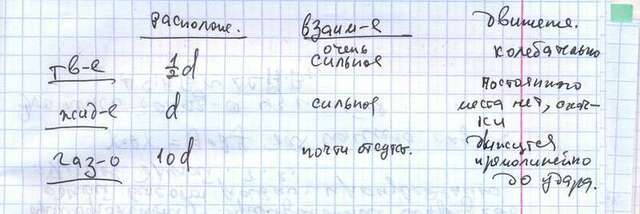 располож. взаим-е движение.
тв-е ½d очень сильное колебательно
жид-е d сильное Постоянного места нет, скач-ки
газ-о 10d почти отсутст. движутся прямолинейно до удара.